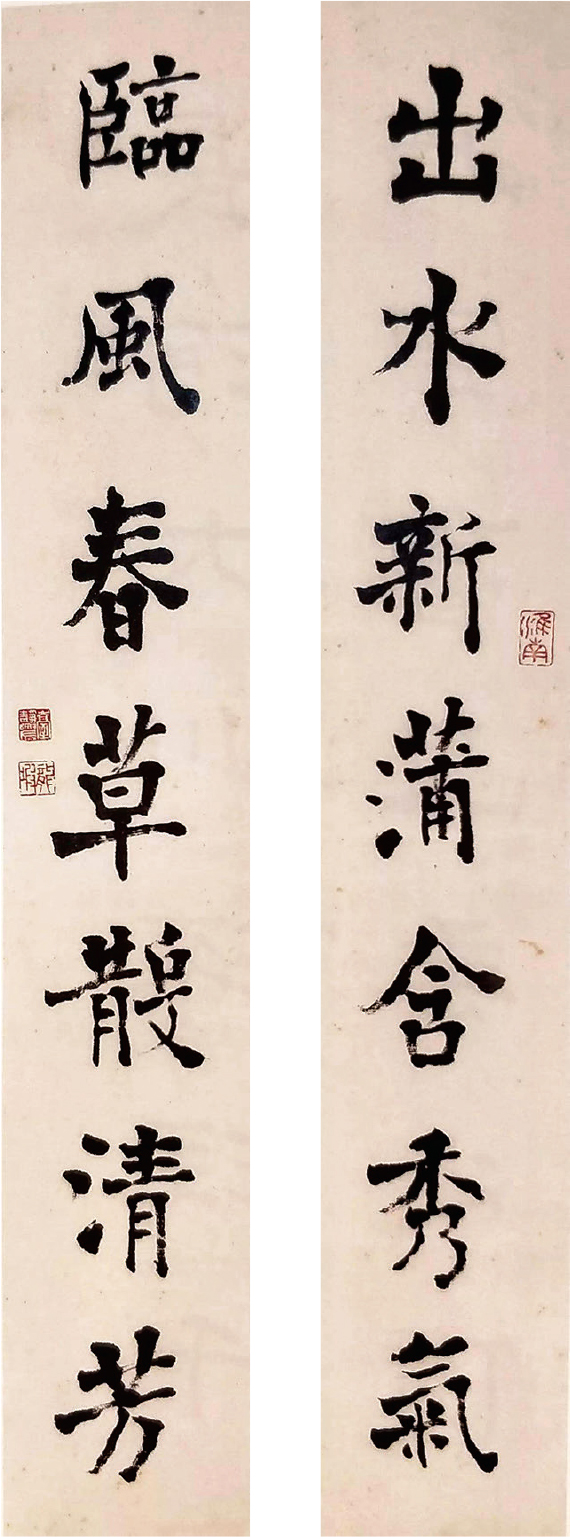 出水新蒲含秀氣
濰南
臨風春草散清芳